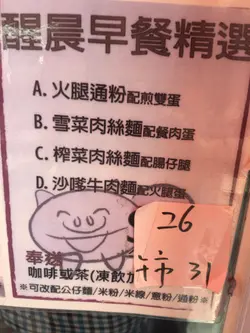 醒晨早餐精選
A. 火腿通粉配煎雙蛋
B. 雪菜肉絲麵配餐肉蛋
C. 榨菜肉絲麵配腸仔腿
D. 沙嗲牛肉麵配火腿蛋
26
奉送
咖啡或茶(凍飲加
31
※可改配公仔麵/米粉/米線/意粉/通粉※